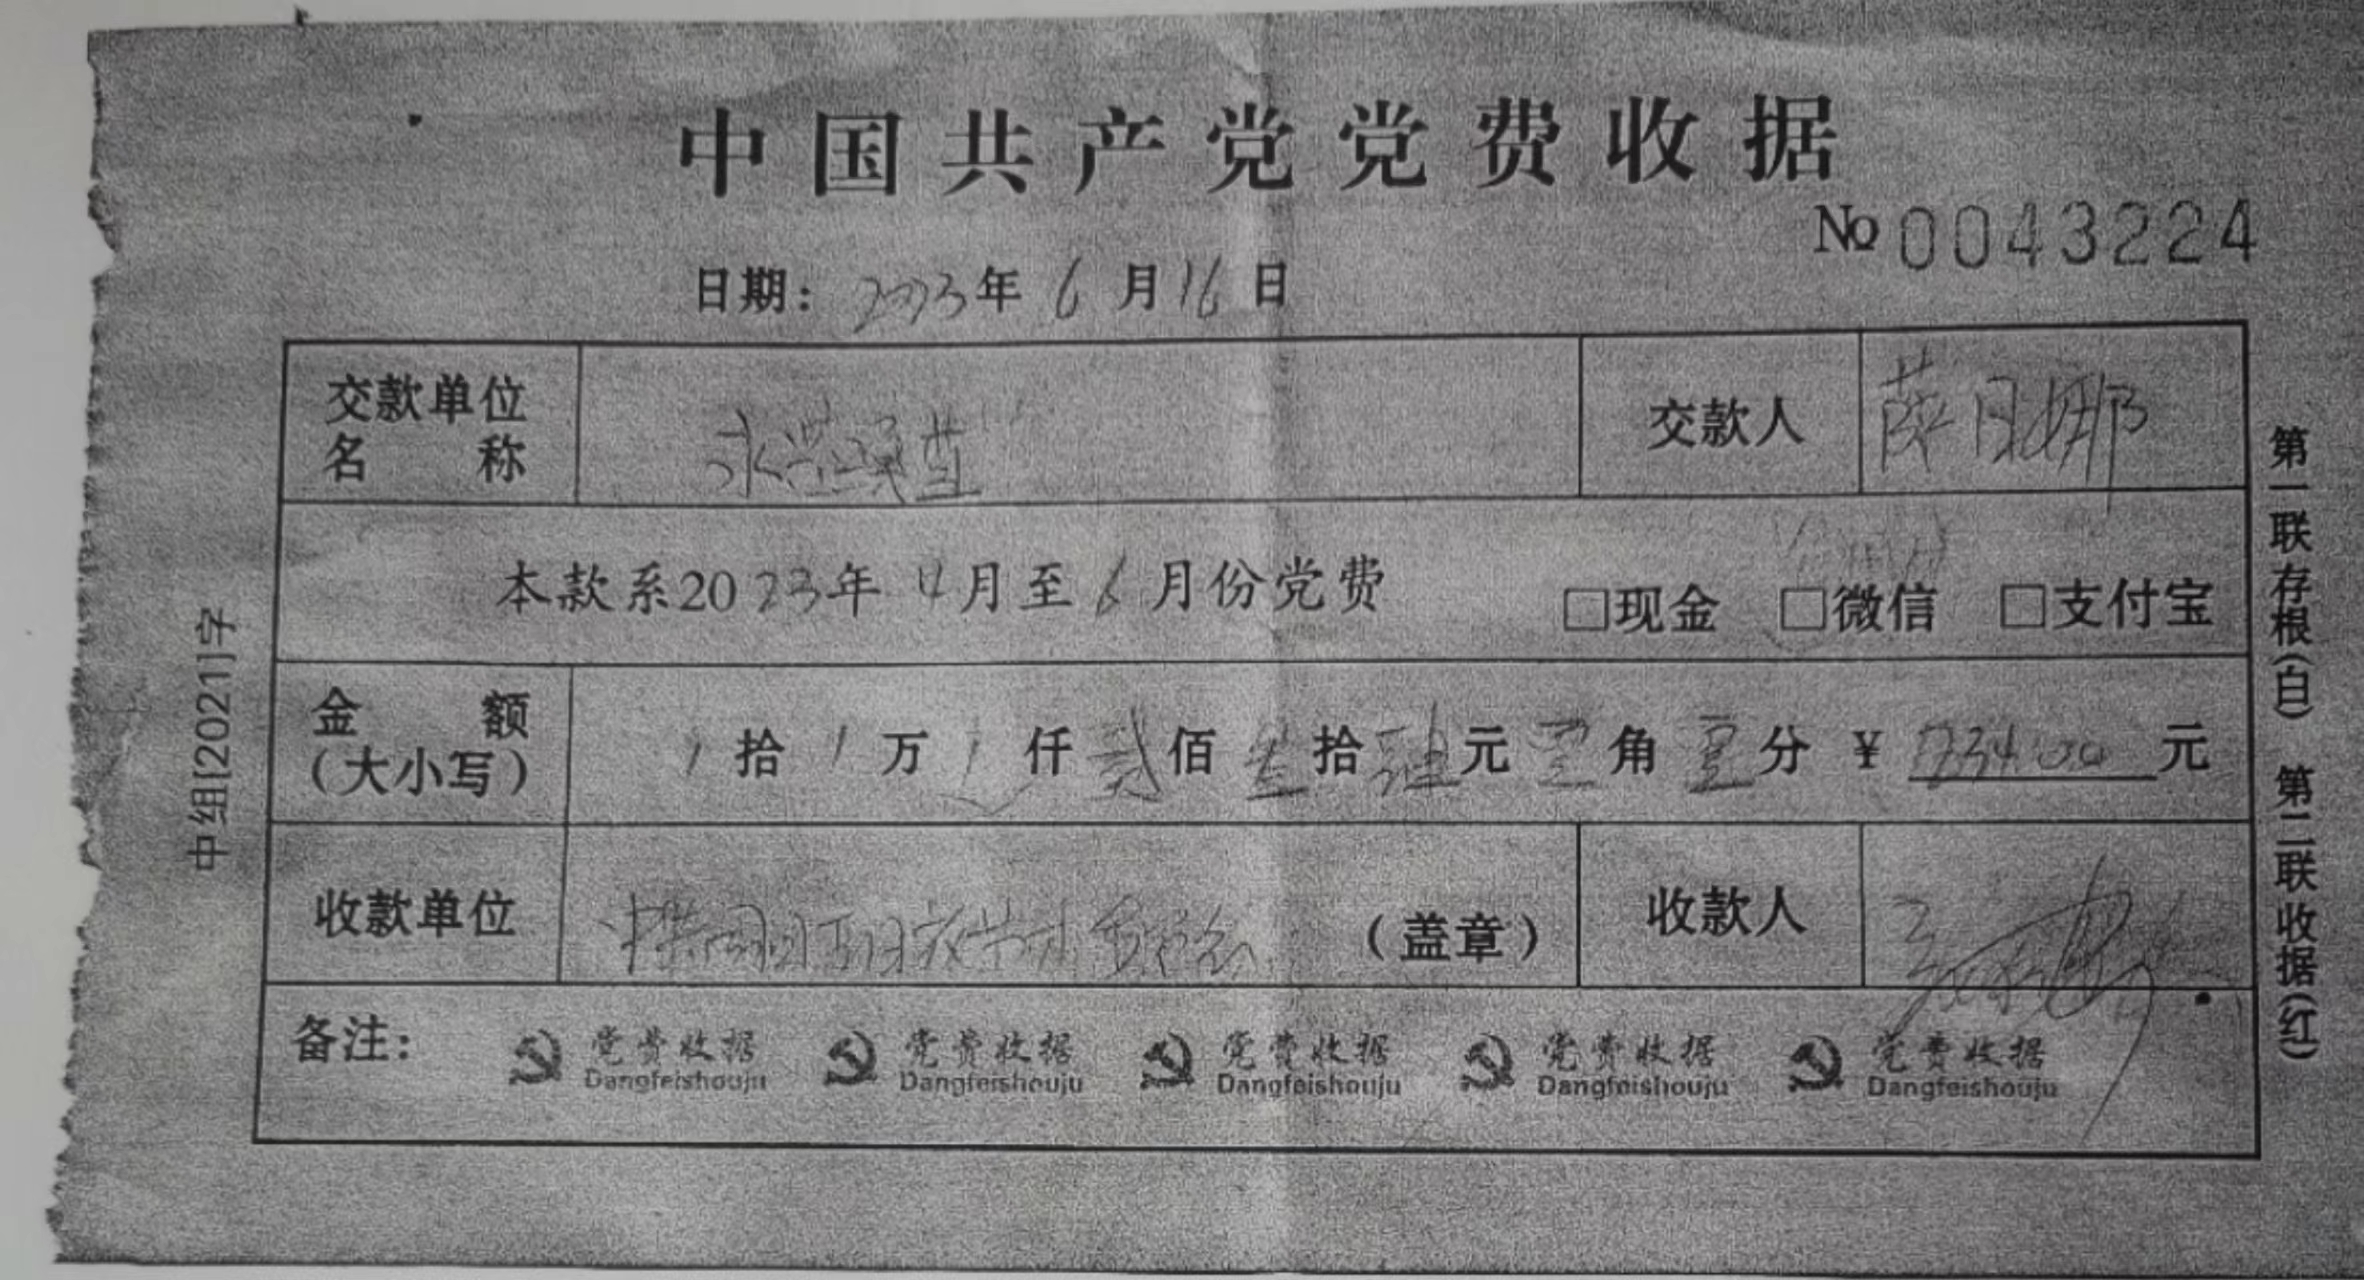 中国共产党党费收据
No 0043224
日期: 2023年6月16日
交款单位名称
交款人
本款系2023年4月至6月份党费 □现金 □微信 □支付宝
金额(大小写) 拾 万 仟 贰佰叁拾肆元零角零分 ¥ 234.00元
收款单位 (盖章)
收款人
备注: 党费收据 党费收据 党费收据 党费收据 党费收据
Dangfeishouju Dangfeishouju Dangfeishouju Dangfeishouju Dangfeishouju
中组[2021]字
第一联存根(白) 第二联收据(红)